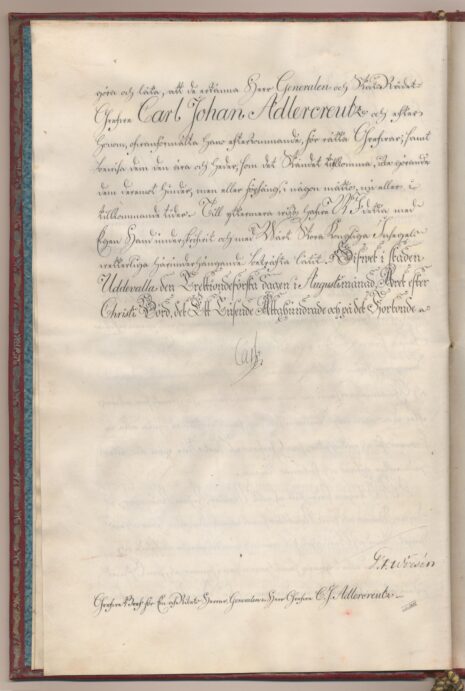 göra och låta, att de erkänna Herr Generalen och Stats Rådet
Grefve Carl Johan Adlercreutz och efter
honom, ofvanförmälta hans efterkommande, för rätta Grefvar, samt
bevisa dem den ära och heder, som det Ståndet tillkomma, icke görande
dem deremot hinder, men eller förfång, i någon måtto, nu eller i
tillkommande tider. Till yttermera visso hafve Vi detta med
Egen Hand underskrifvit och med Vårt Stora Kongliga Insegel
vetterligen härunderhängande bekräfta låtit. Gifvet i staden
Uddevalla den Trettiondeförsta dagen i Augusti månad, Året efter
Christi Börd, det Ett Tusende Åttahundrade och på det Fjortonde
Carl.
Grefve Bref för En af Rikets Herrar, Generalen Herr Grefve C. J. Adlercreutz